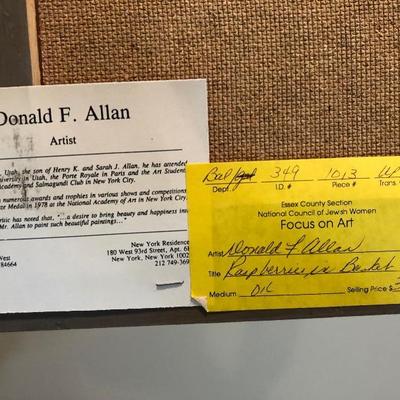 Donald F. Allan
Artist
, Utah, the son of Henry K. and Sarah J. Allan, he has attended
University in Utah, the Porte Royale in Paris and the Art Student
Academy and Salmagundi Club in New York City.
numerous awards and trophies in various shows and competitions
ze Medal in 1978 at the National Academy of Art in New York City.
ritic has noted that, "...a desire to bring beauty and happiness into
Mr. Allan to paint such beautiful paintings..."
New York Residence
180 West 93rd Street, Apt. 6
New York, New York 1002
212 749-369
West
84664
349 1013
Dept. I.D. # Piece # Trans.
Essex County Section
National Council of Jewish Women
Focus on Art
Artist Donald F Allan
Title Raspberries in Basket
Medium Oil Selling Price $